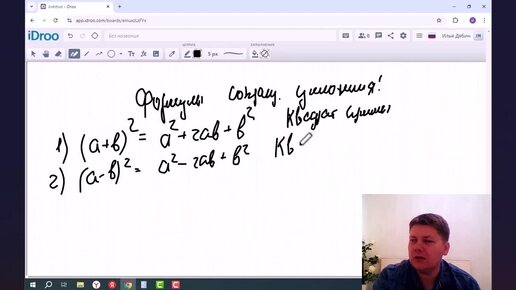 Untitled - iDroo
app.idroo.com/boards/emuxoLdFYx
iDroo
Без названия
Илья Дябин
5 px
Формулы сокращ. умножения!
1) (a+b)² = a²+2ab+b² Квадрат суммы
2) (a-b)² = a²-2ab+b² Кв